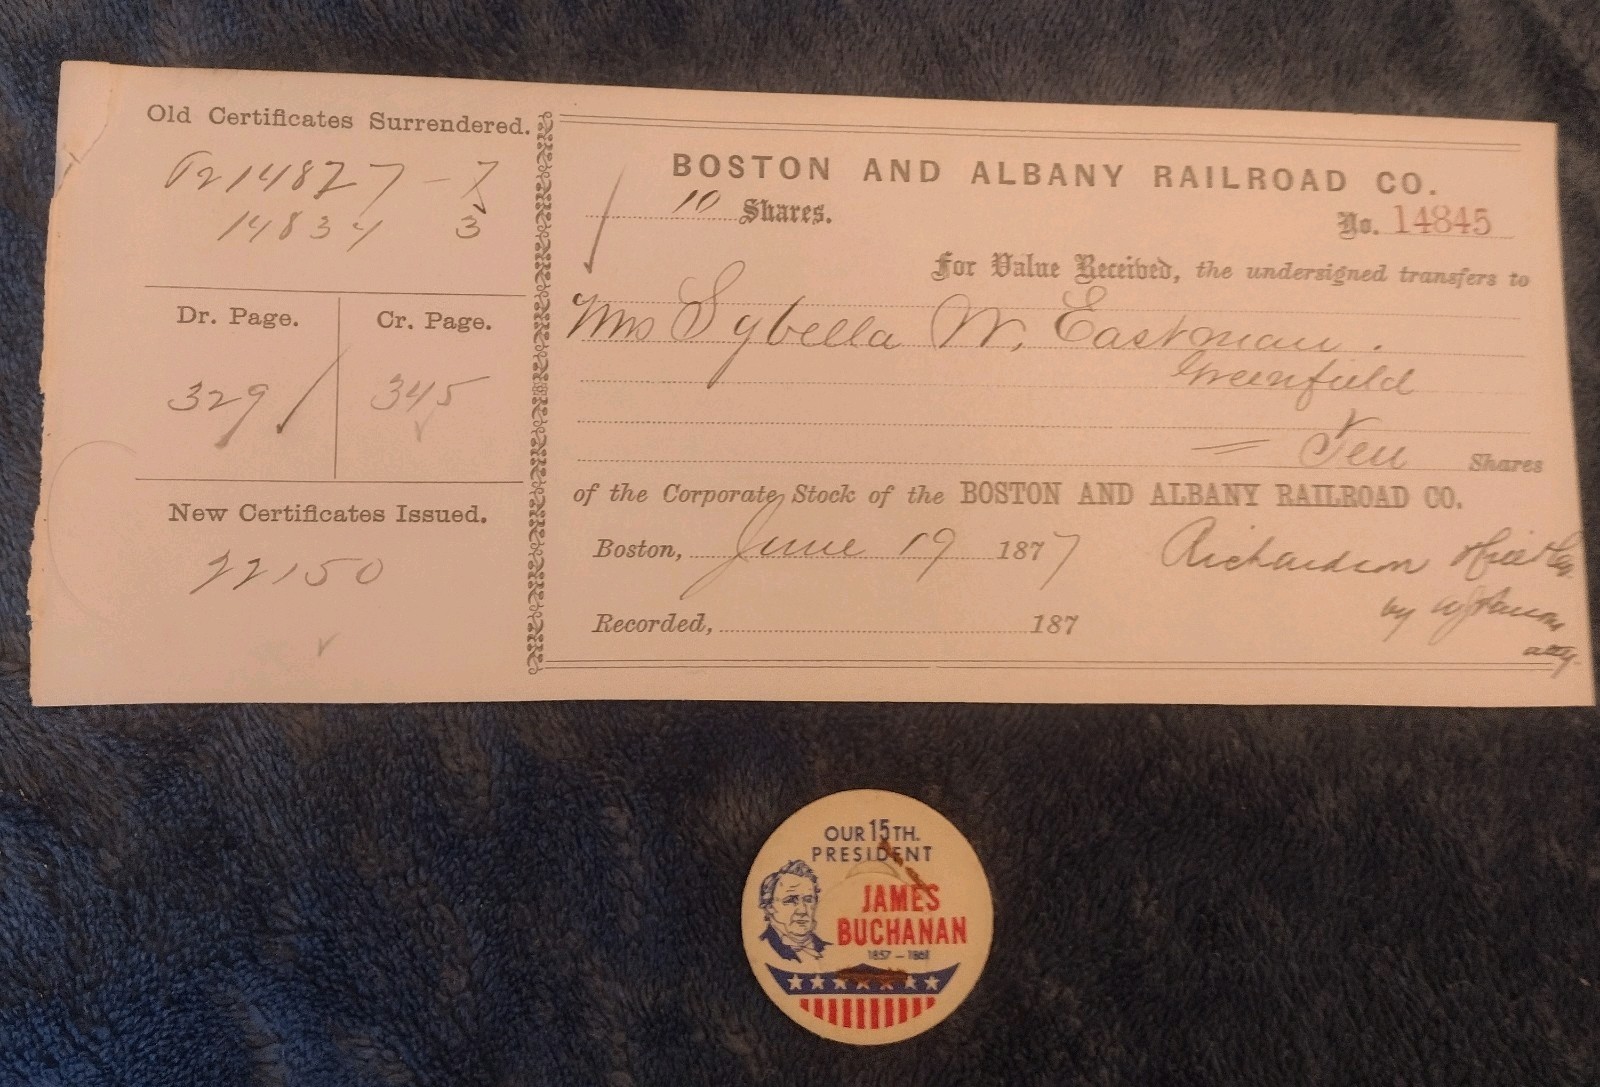 Old Certificates Surrendered.
14827 - 7
14834 3
Dr. Page.
Cr. Page.
329
345
New Certificates Issued.
22150
BOSTON AND ALBANY RAILROAD CO.
10 Shares.
No. 14845
For Value Received, the undersigned transfers to
Mrs Sybella W. Eastman.
Greenfield
= Ten Shares
of the Corporate Stock of the BOSTON AND ALBANY RAILROAD CO.
Boston, June 19 1877
Richardson
by
atty.
Recorded, 187
OUR 15TH.
PRESIDENT
JAMES
BUCHANAN
1857 - 1861